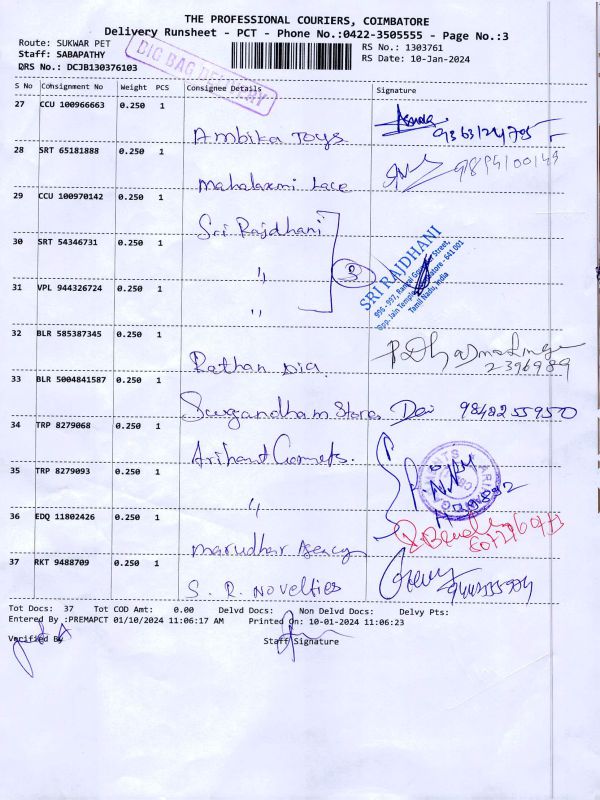 THE PROFESSIONAL COURIERS, COIMBATORE
Delivery Runsheet - PCT - Phone No.:0422-3505555 - Page No.:3
Route: SUKWAR PET
RS No.: 1303761
Staff: SABAPATHY
RS Date: 10-Jan-2024
DRS No.: DCJB130376103
BIG BAG DELIVERY
S No Consignment No Weight PCS Consignee Details Signature
27 CCU 100966663 0.250 1
Ambika Toys
28 SRT 65181888 0.250 1
Mahalaxmi Lace
29 CCU 100970142 0.250 1
Sri Rajdhani
30 SRT 54346731 0.250 1
"
3
SRI RAJDHANI
Tamil Nadu, India
31 VPL 944326724 0.250 1
"
32 BLR 585387345 0.250 1
Rathan Dia
2396989
33 BLR 5004841587 0.250 1
Sugandham Stores Devi 9848255950
34 TRP 8279068 0.250 1
Arihant Garments.
35 TRP 8279093 0.250 1
"
36 EDQ 11802426 0.250 1
Marudhar Agency
37 RKT 9488709 0.250 1
S. R. Novelties
Tot Docs: 37 Tot COD Amt: 0.00 Delvd Docs: Non Delvd Docs: Delvy Pts:
Entered By :PREMAPCT 01/10/2024 11:06:17 AM Printed On: 10-01-2024 11:06:23
Verified By
Staff Signature